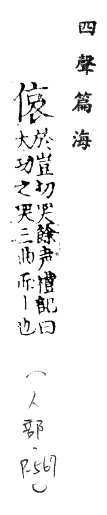 四聲篇海
偯
於豈切哭餘声禮記曰
大功之哭三曲而丨也
(人部·P.567)